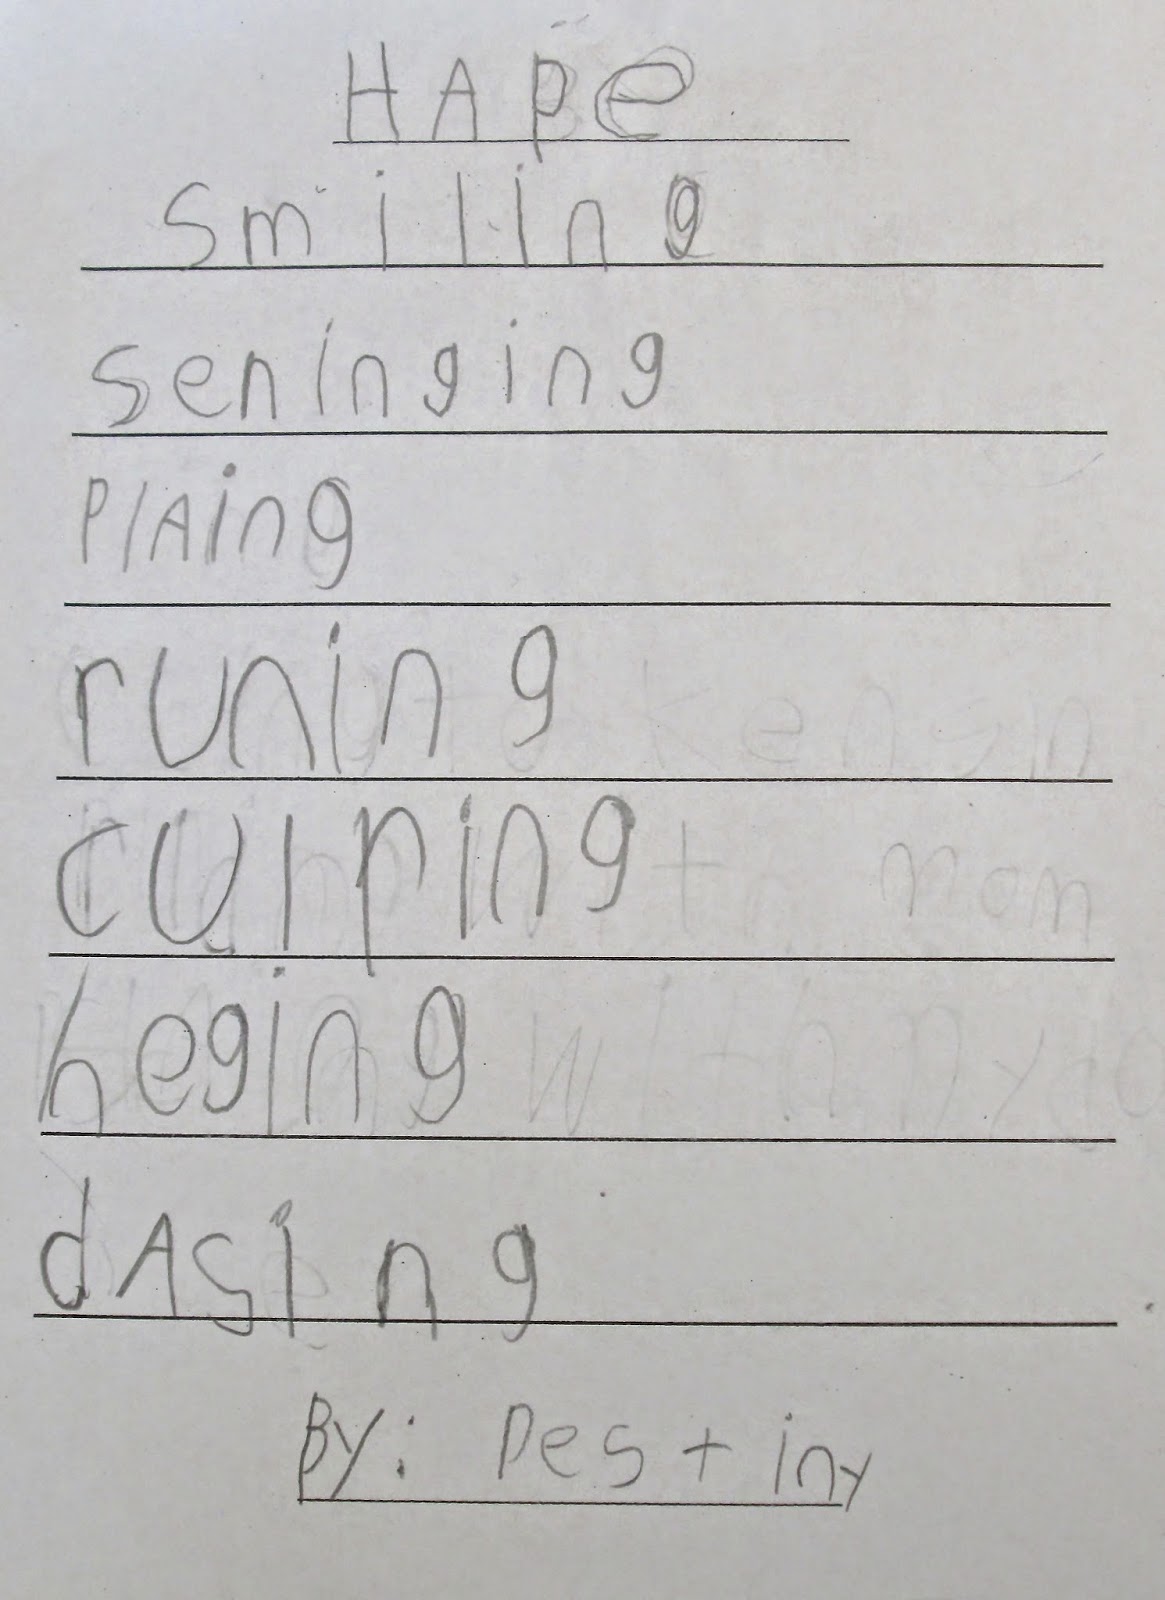 HApe
smiling
seninging
plAing
runing
culping
heging
dAsing
By: Destiny